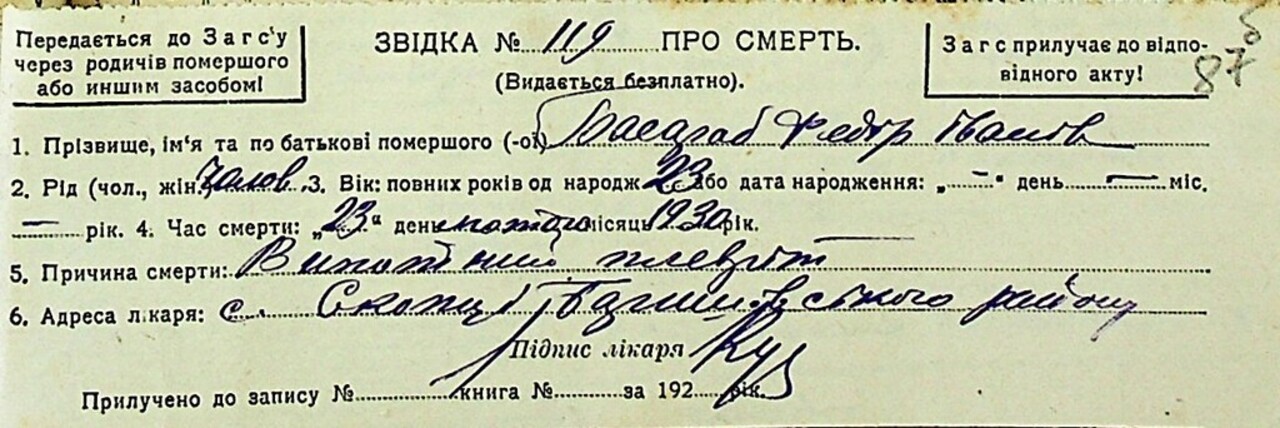 Передається до Загс'у
через родичів помершого
або иншим засобом!
ЗВІДКА № 119 ПРО СМЕРТЬ.
(Видається безплатно).
Загс прилучає до відпо-
відного акту!
87
1. Прізвище, ім'я та по батькові помершого (-ої) Федір Іванов
2. Рід (чол., жін.) чолов. 3. Вік: повних років од народж. 23 або дата народження: „ — " день — міс.
— рік. 4. Час смерти: „23" день лютого місяць 1930 рік.
5. Причина смерти: Випотний плеврит
6. Адреса лікаря: с. Скопці району
Підпис лікаря
Прилучено до запису № книга № за 192 рік.